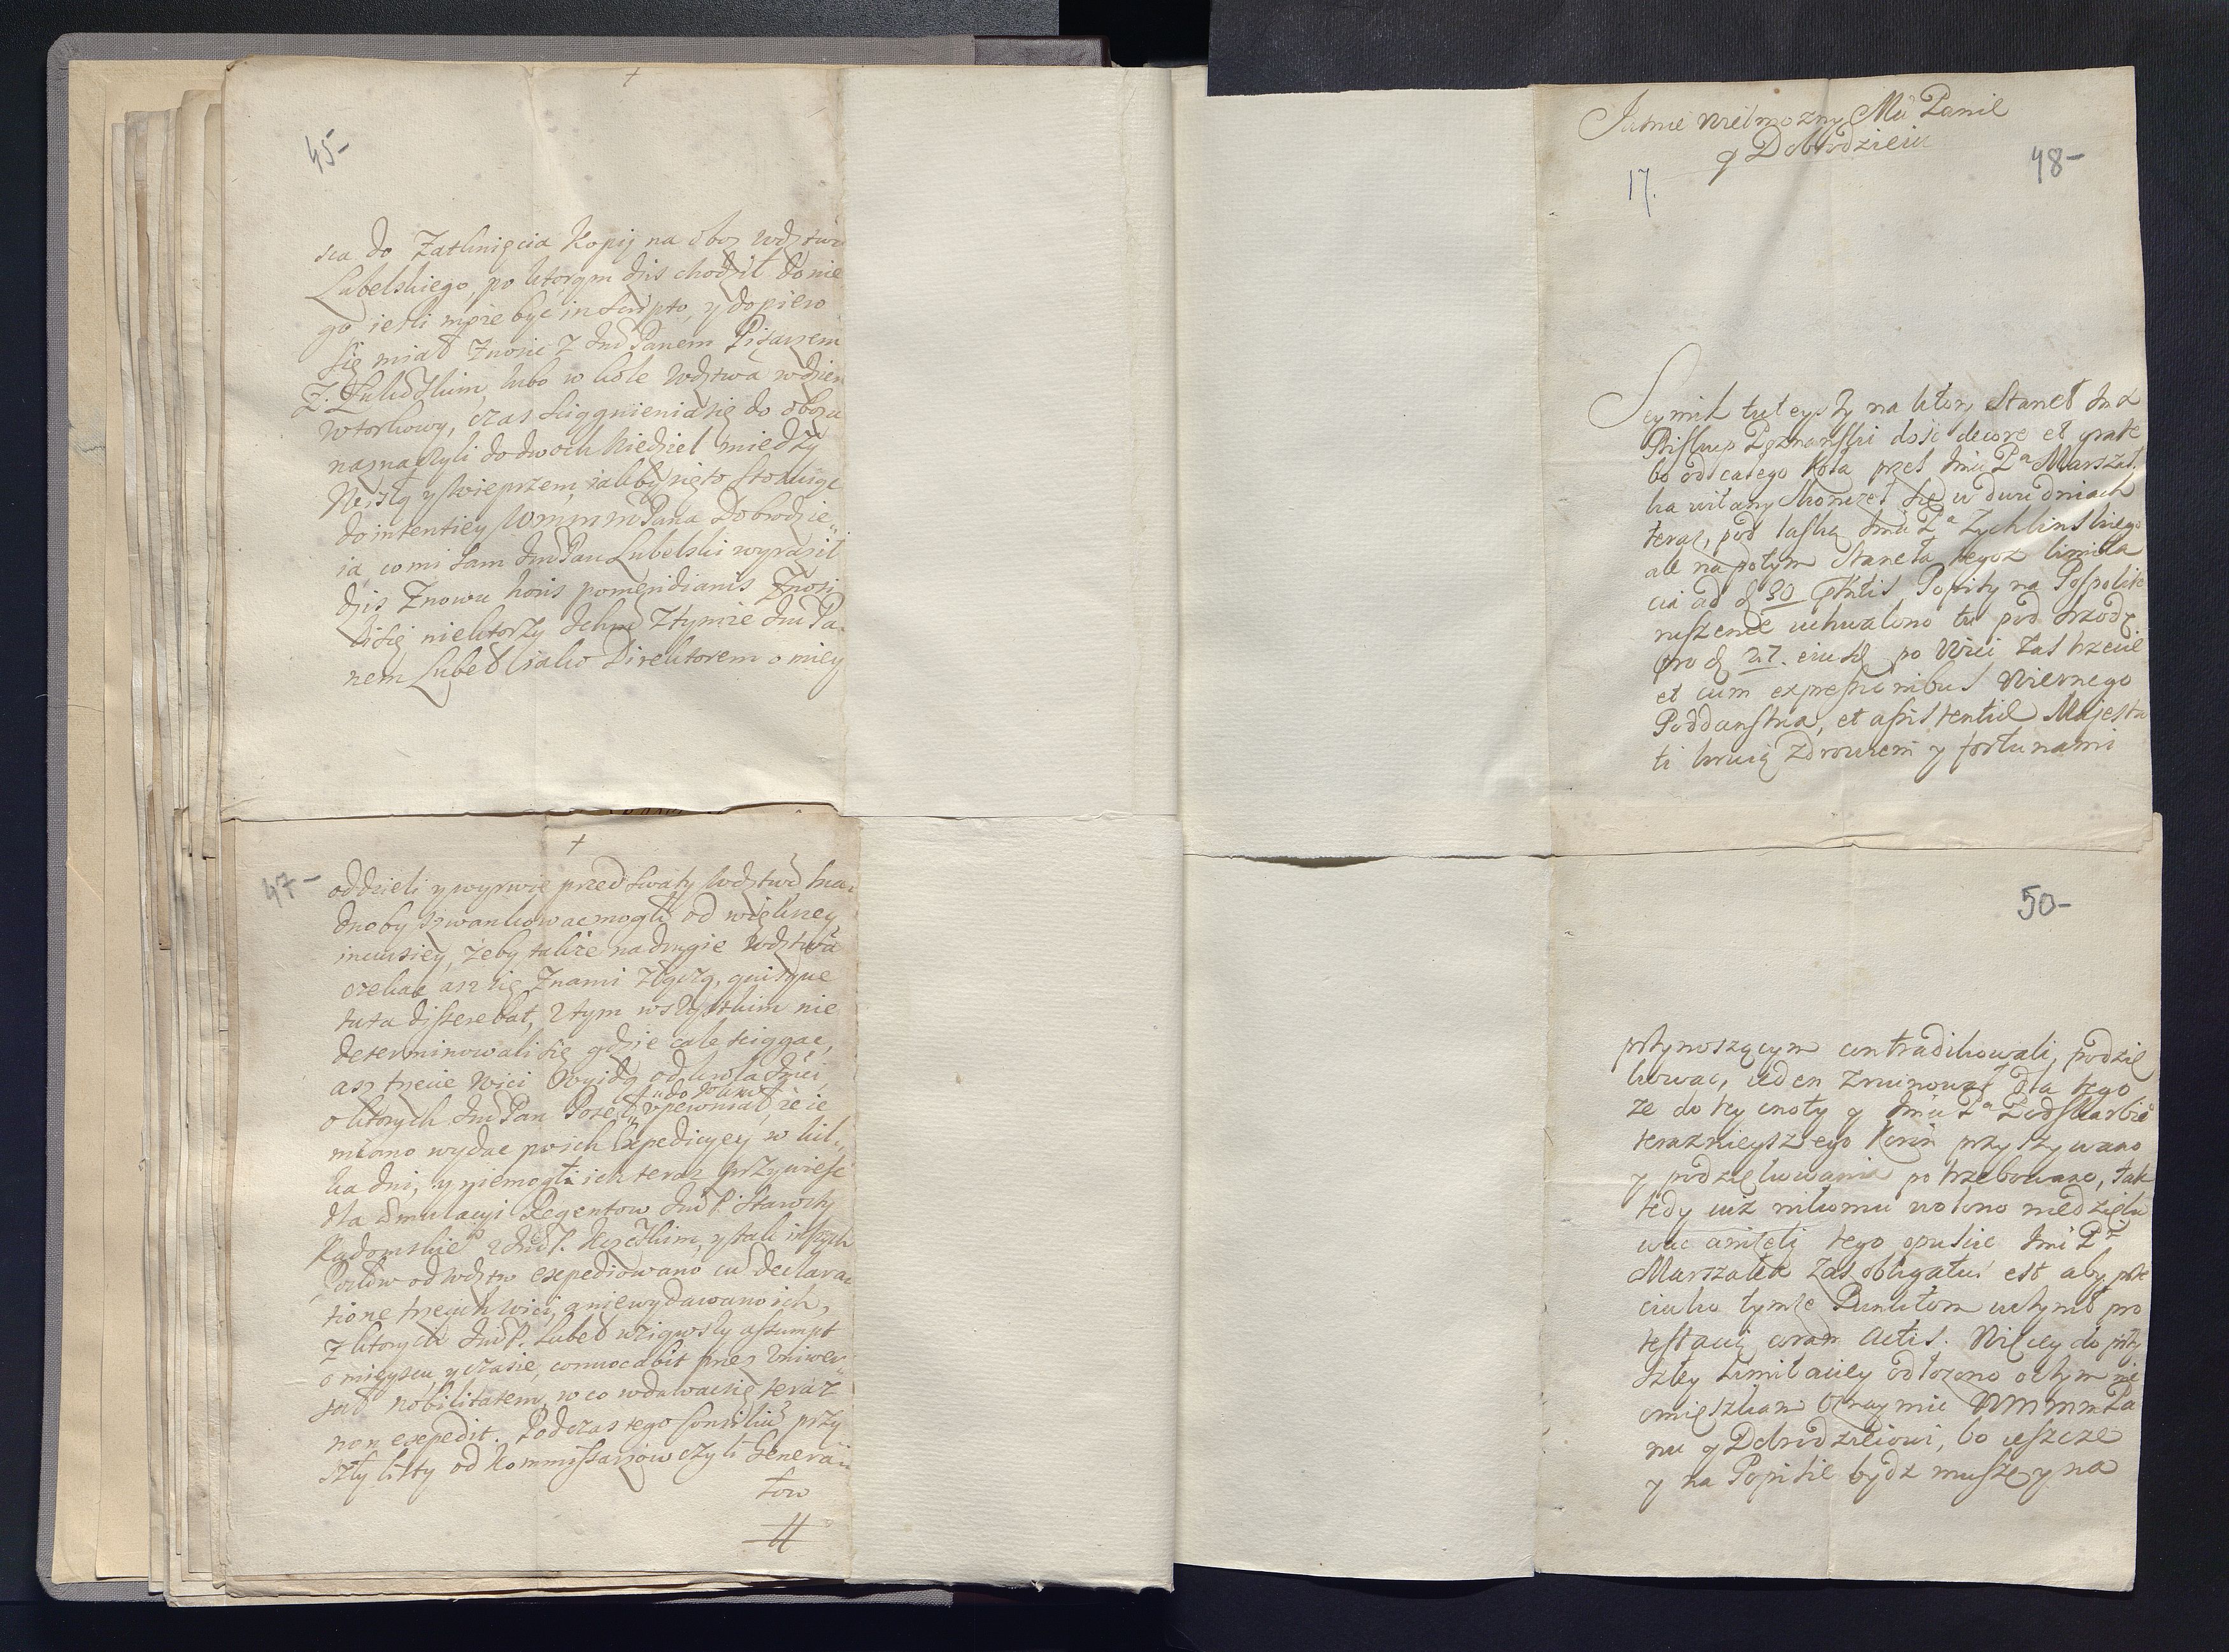 45-
sca do Zatknięcia Kopij na oboz wdztwu
Lubelskiego, po ktorym dzis chodził do nie
go iesli może być in scripto, y dopiero
się miał znosic z Jmć Panem Pisarzem
lubo w kole Wdztwa
wtorkowy, czas sciągnienia się do oboza
naznaczyli do dwoch Niedziel między
Wisłą y Wieprzem, iakby się to stosuie
do intentiey WMMMPana Dobrodzie
ia, co mi sam Jmć Pan Lubelski wyraził
dzis Znowu horis pomeridianis Znosi
li się niektorzy Ichmć z tymże Jmć Pa
nem Lubel iako Direktorem o miey
47-
oddzieli y wyrwie przed swaty Wdztwo
dno by szwankowac mogli od większey
incursiey, żeby także na drugie wdztwa
czekac asz się z nami złączą, quisque
tuta disserebat, z tym wszystkim nie
determinowali się gdzie cale sciągac,
asz trzecie wici wyidą od krola Jmci,
o ktorych Jmć Pan Poseł upewniał, że ie
miano wydac po ich Expedicyey w kil
ka dni, y niemogli ich teraz przywiesc
dla emulacyi Regentow Jmć P. Starosty
Radomskie z Jmć P. y tak inszych
Posłow od wdztw expediowano cū declara
tione trzecich wici, a nie wydawano ich,
z ktorych Jmć P. Lubel wziąwszy assumpt
o mieyscu y czasie, convocabit przez Uniwer
sał nobilitatem, w co wdawac się teraz
non expedit. Podczas tego Consiliū przy
szły listy od Kommissarzow czyli Generał
łow
17.
Jasnie Wielmozny Mci Panie
y Dobrodzieiu
48-
Seymik tuteyszy na ktory stanął Jmć
Biskup Poznanski dosć decore et grate
bo od całego koła przez Jmci Pa Marszał
ka witany skonczeł się w dwu dniach
teraz, pod laską Jmci Pa Zychlinskiego
ale na potym staneła tegoz limita
cia ad d 30 Popisy na Pospolite
ruszenie uchwalono tu pod srzodę
pro d 27. eiusd po Wici zas trzecie
et cum expressionibus Wiernego
Poddanstwa, et assistentiae Majesta
ti krwią zdrowiem y fortunami
50-
przynoszącym contradikowali, podzię
kować, ieden zruinował dla tego
ze do tey cnoty y Jmci Pa Podskarbie
teraznieyszego Koron przyszywano
y podziękowania potrzebowano, tak
tedy iuz nikomu wolono niedzięko
wac anizeli tego opuscic Jmci Pa
Marszałek zas obligatus est aby prze
ciwko tymze Punktom uczynił pro
testacią coram Actis. Więcy do przy
szłey Limitaciey odłozono o czym nie
omięszkam oznaymic WMMMPa
nu y Dobrodzieiowi, bo ieszcze
y na Popisie bydz muszę y na